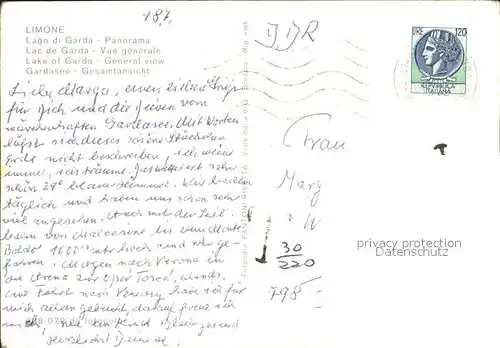 187.
LIMONE
Lago di Garda - Panorama
Lac de Garda - Vue générale
Lake of Garda - General view
Gardasee - Gesamtansicht
DDR
LIRE 120
REPUBBLICA
ITALIANA
Liebe Marga, einen lieben Gruß
für Dich und die Deinen vom
märchenhaften Gardasee. Mit Worten
läßt sich dieses schöne Stückchen
Erde nicht beschreiben, ich meine
immer, ich träume. Das Wetter ist sehr
schön 29° blauer Himmel. Wir baden
täglich und haben uns schon sehr
viel angesehen. Auch mit der Seil-
bahn von Malcesine bis zum Monte
Baldo 1600 mtr hoch sind wir ge-
fahren. Morgen nach Verona in
die Arena zur Oper Tosca, abends.
Eine Fahrt nach Venedig habe ich für
mich allein gebucht, darauf freue ich
mich,
herzlichst Deine
Frau
Marg
W
30
220
798-
privacy protection
Oldthing.de